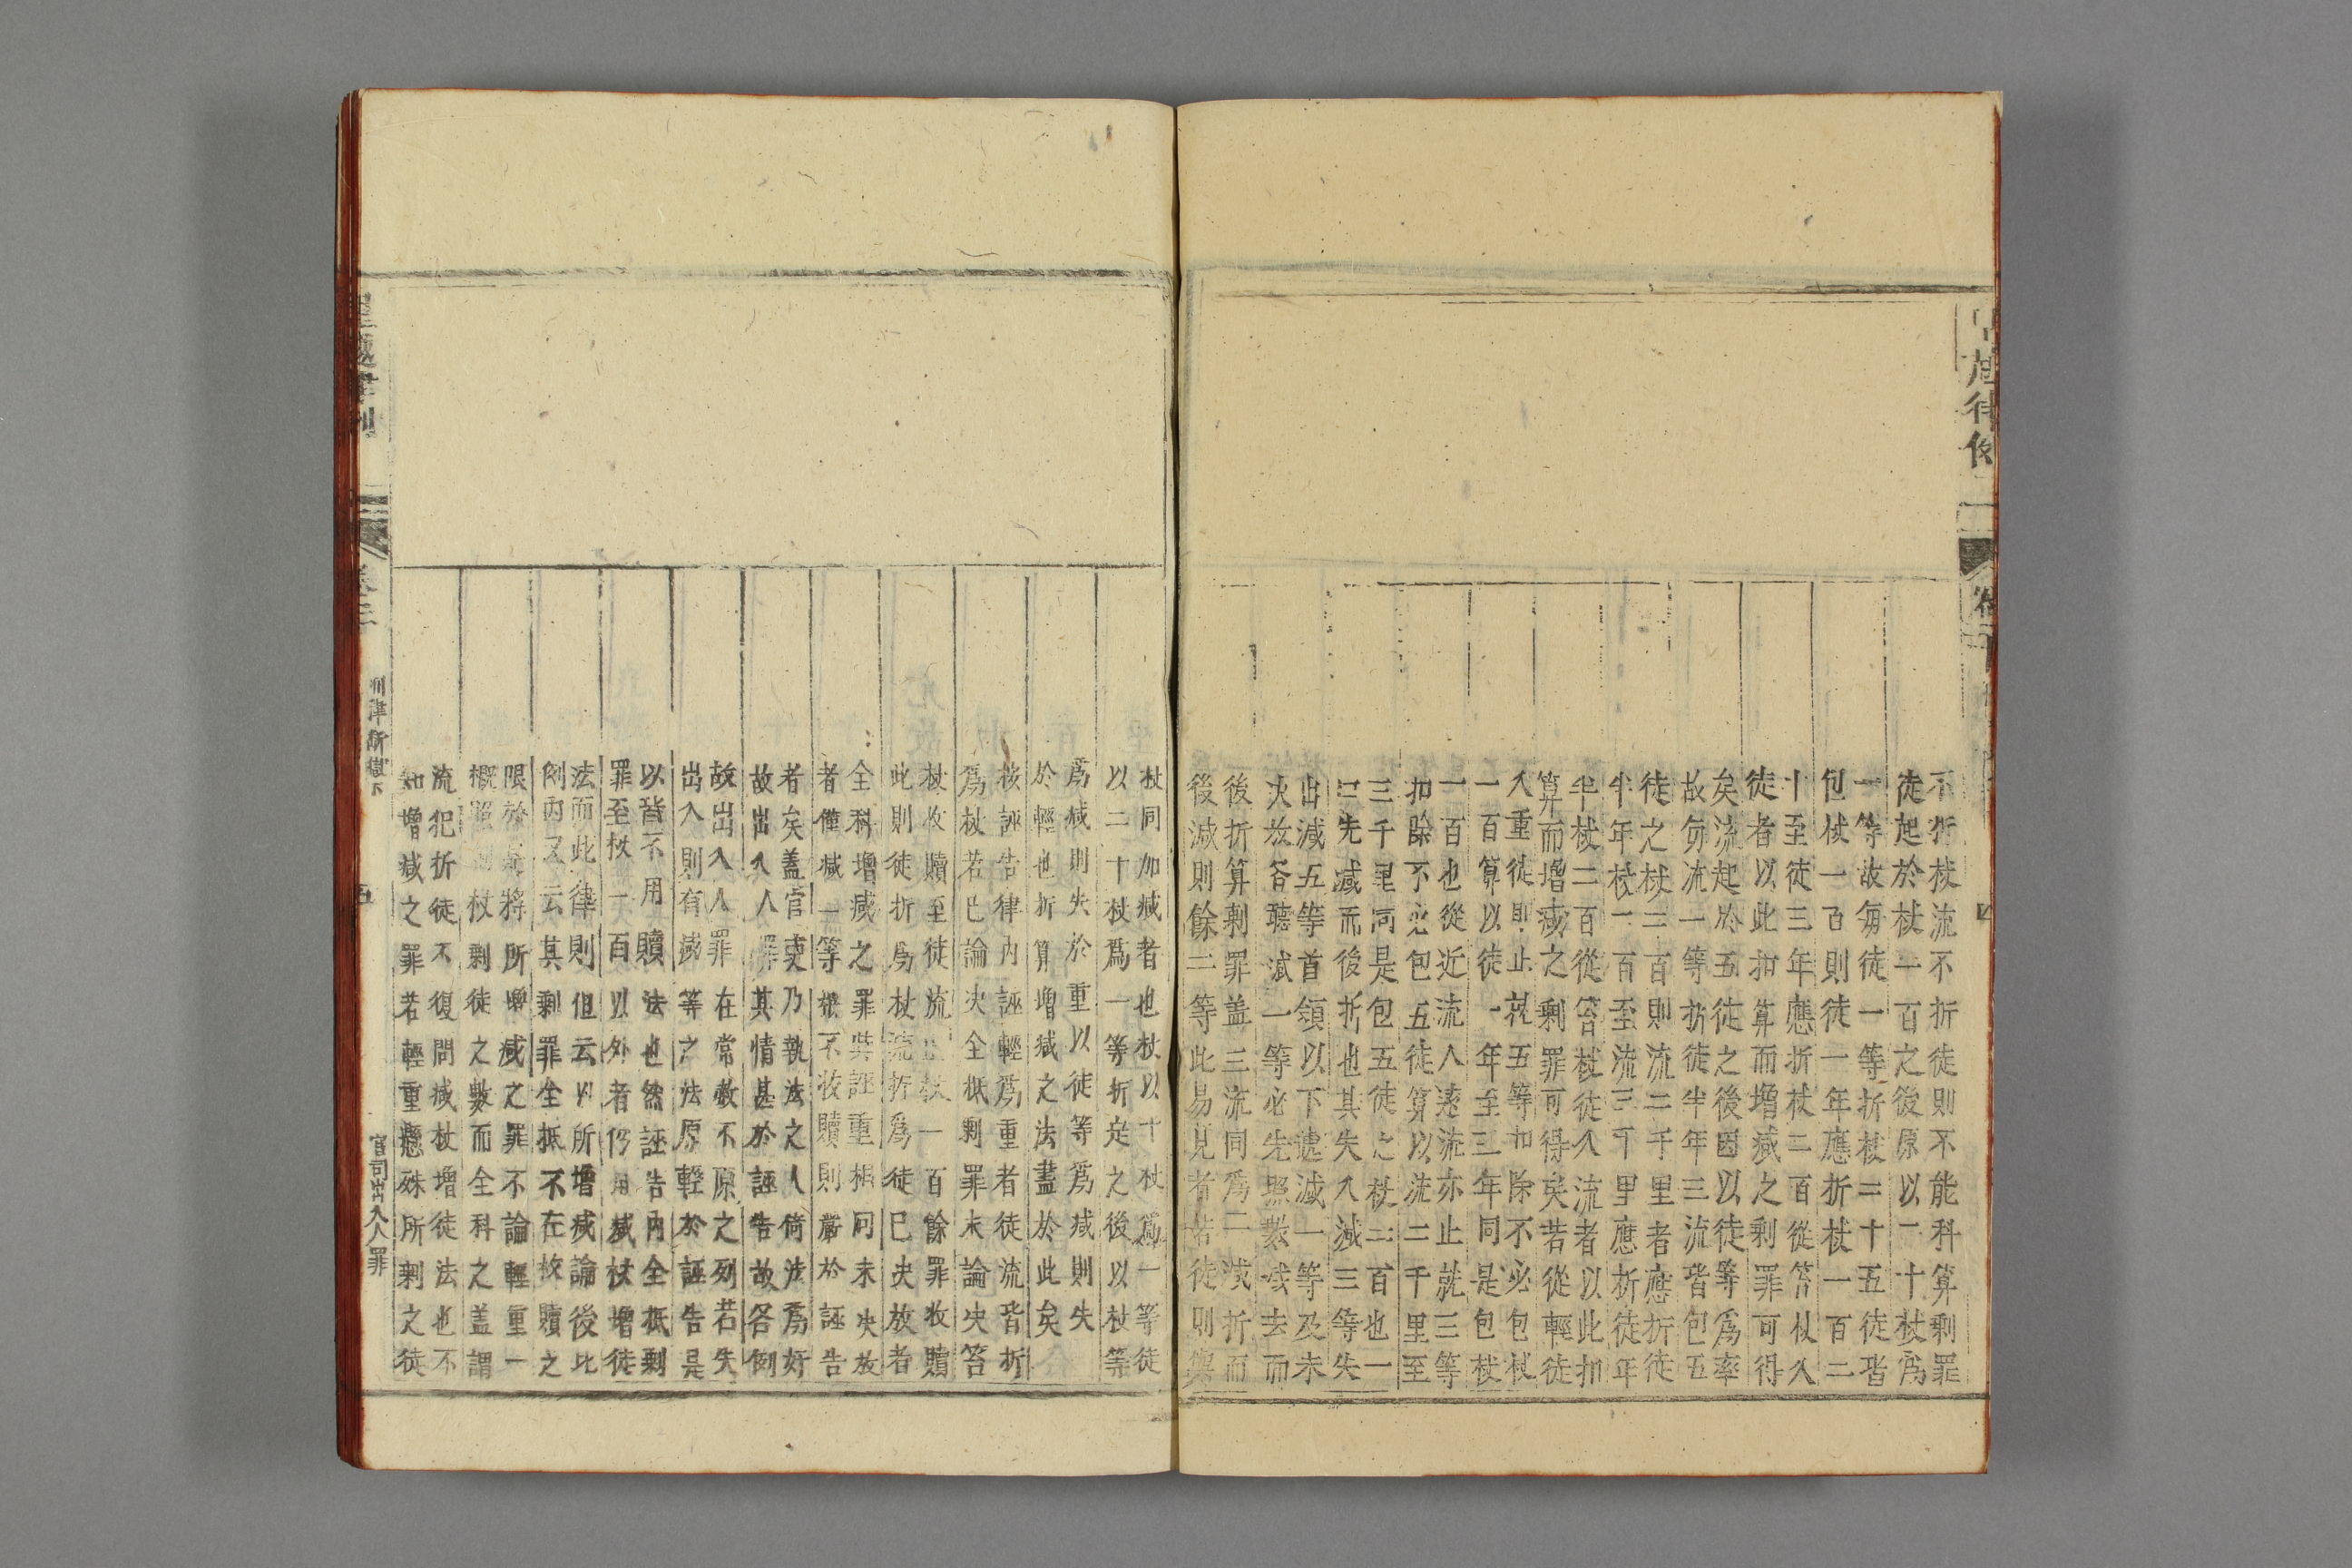 不折杖流不折徒則不能科算剩罪
徒起於杖一百之後原以二十杖爲
一等故每徒一等折杖二十五徒皆
包杖一百則徒一年應折杖一百二
十至徒三年應折杖二百從笞杖入
徒者以此扣算而增減之剩罪可得
矣流起於五徒之後因以徒等爲率
故每流一等折徒半年三流皆包五
徒之杖二百則流二千里者應折徒
半年杖二百至流三千里應折徒年
半杖二百從笞杖徒入流者以此扣
算而增減之剩罪可得矣若從輕徒
入重徒即止就五等扣除不必包杖
一百算以徒一年至三年同是包杖
一百也從近流入遠流亦止就三等
扣除不必包五徒算以流二千里至
三千里同是包五徒之杖二百也一
曰先減而後折也其失入減三等失
出減五等首領以下遞減一等及未
決放各聽減一等必先照數減去而
後折算剩罪盖三流同爲二減折而
後減則餘三等此易見者若徒則與
杖同加減者也杖以十杖爲一等徒
以二十杖爲一等折定之後以杖等
爲減則失於重以徒等爲減則失
於輕也折算增減之法盡於此矣
按誣告律內誣輕爲重者徒流皆折
爲杖若已論决全抵剩罪未論决笞
杖收贖至徒流止杖一百餘罪收贖
此則徒折爲杖流折爲徒已决放者
全科增減之罪與誣重相同未决放
者僅減一等概不收贖則嚴於誣告
者矣盖官吏乃執法之人倚法爲奸
故出入人罪其情甚於誣告故各例
故出入人罪在常赦不原之列若失
出入則有減等之法原輕於誣告是
以皆不用贖法也然誣告內全抵剩
罪至杖一百以外者仍用減杖增徒
法而此律則但云以所增減論後比
例內又云其剩罪全抵不在收贖之
限於是將所增減之罪不論輕重一
概照剩杖剩徒之數而全科之盖謂
流犯折徒不復問減杖增徒法也不
知增減之罪若輕重懸殊所剩之徒
卷三
刑律斷獄下
五
官司出入人罪